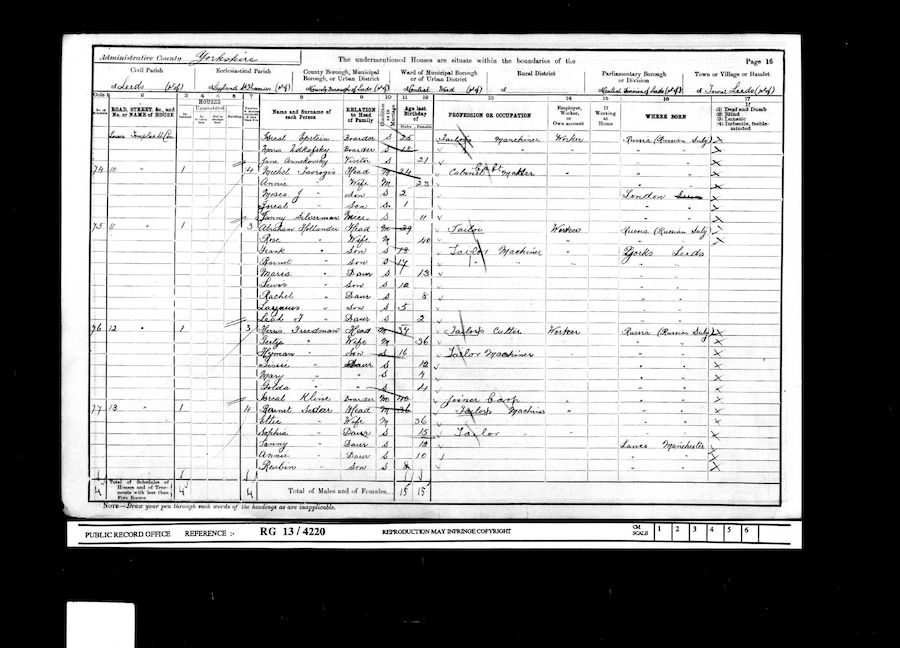 Administrative County Yorkshire
The undermentioned Houses are situate within the boundaries of the
Page 16
Civil Parish
Ecclesiastical Parish
County Borough, Municipal Borough, or Urban District
Ward of Municipal Borough or of Urban District
Rural District
Parliamentary Borough or Division
Town or Village or Hamlet
of Leeds (pt of)
County Borough of Leeds (pt of)
Central Ward (pt of)
of
of Town Leeds (pt of)
ROAD, STREET, &c., and No. or NAME of HOUSE
HOUSES
Name and Surname of each Person
RELATION to Head of Family
Age last Birthday of
PROFESSION OR OCCUPATION
Employer, Worker, or Own account
If Working at Home
WHERE BORN
(1) Deaf and Dumb
(2) Blind
(3) Lunatic
(4) Imbecile, feeble-minded
Males Females
Israel Epstein Boarder S 25 Tailor's Machiner Worker Russia (Russian Subj)
Boarder S 18 "
Visitor S 21
74 10 " 1 4 Michel Head M 24 Cabinet Maker " "
Annie " Wife M 23 "
Moses J " Son S 2 London
Israel " Son S 1 "
Fanny Silverman Niece S 11 "
75 11 " 1 3 Abraham Hollander Head M 39 Tailor Worker Russia (Russian Subj)
Rose " Wife M 40 "
Frank " Son S 18 Tailor Machiner " Yorks Leeds
Barnet " Son S 17 " " " "
Maria " Daur S 13 "
Lewis " Son S 10 "
Rachel " Daur S 8 "
Lazarus " Son S 5 "
Leah " Daur S 2 "
76 12 " 1 3 Freedman Head M 37 Tailor's Cutter Worker Russia (Russian Subj)
" Wife M 36 "
Hyman " Son S 16 Tailor Machiner " "
" Daur S 12 "
Mary " " S 7 "
Golda " " S 4 "
Israel Kline Boarder 40 Joiner Carp " "
77 13 " 1 4 Barnet Head M 36 Tailor's Machiner " "
Ettie " Wife M 36 "
Sophia " Daur S 15 Tailor " "
Fanny " Daur S 12 Lancs Manchester
Annie " Daur S 10 " "
Reubin " Son S 8 " "
4
Total of Schedules of Houses and of Tenements with less than Five Rooms
4
4
Total of Males and of Females...
15 15
NOTE—Draw your pen through such words of the headings as are inapplicable.
PUBLIC RECORD OFFICE REFERENCE :- RG 13/4220 REPRODUCTION MAY INFRINGE COPYRIGHT CM SCALE 1 2 3 4 5 6